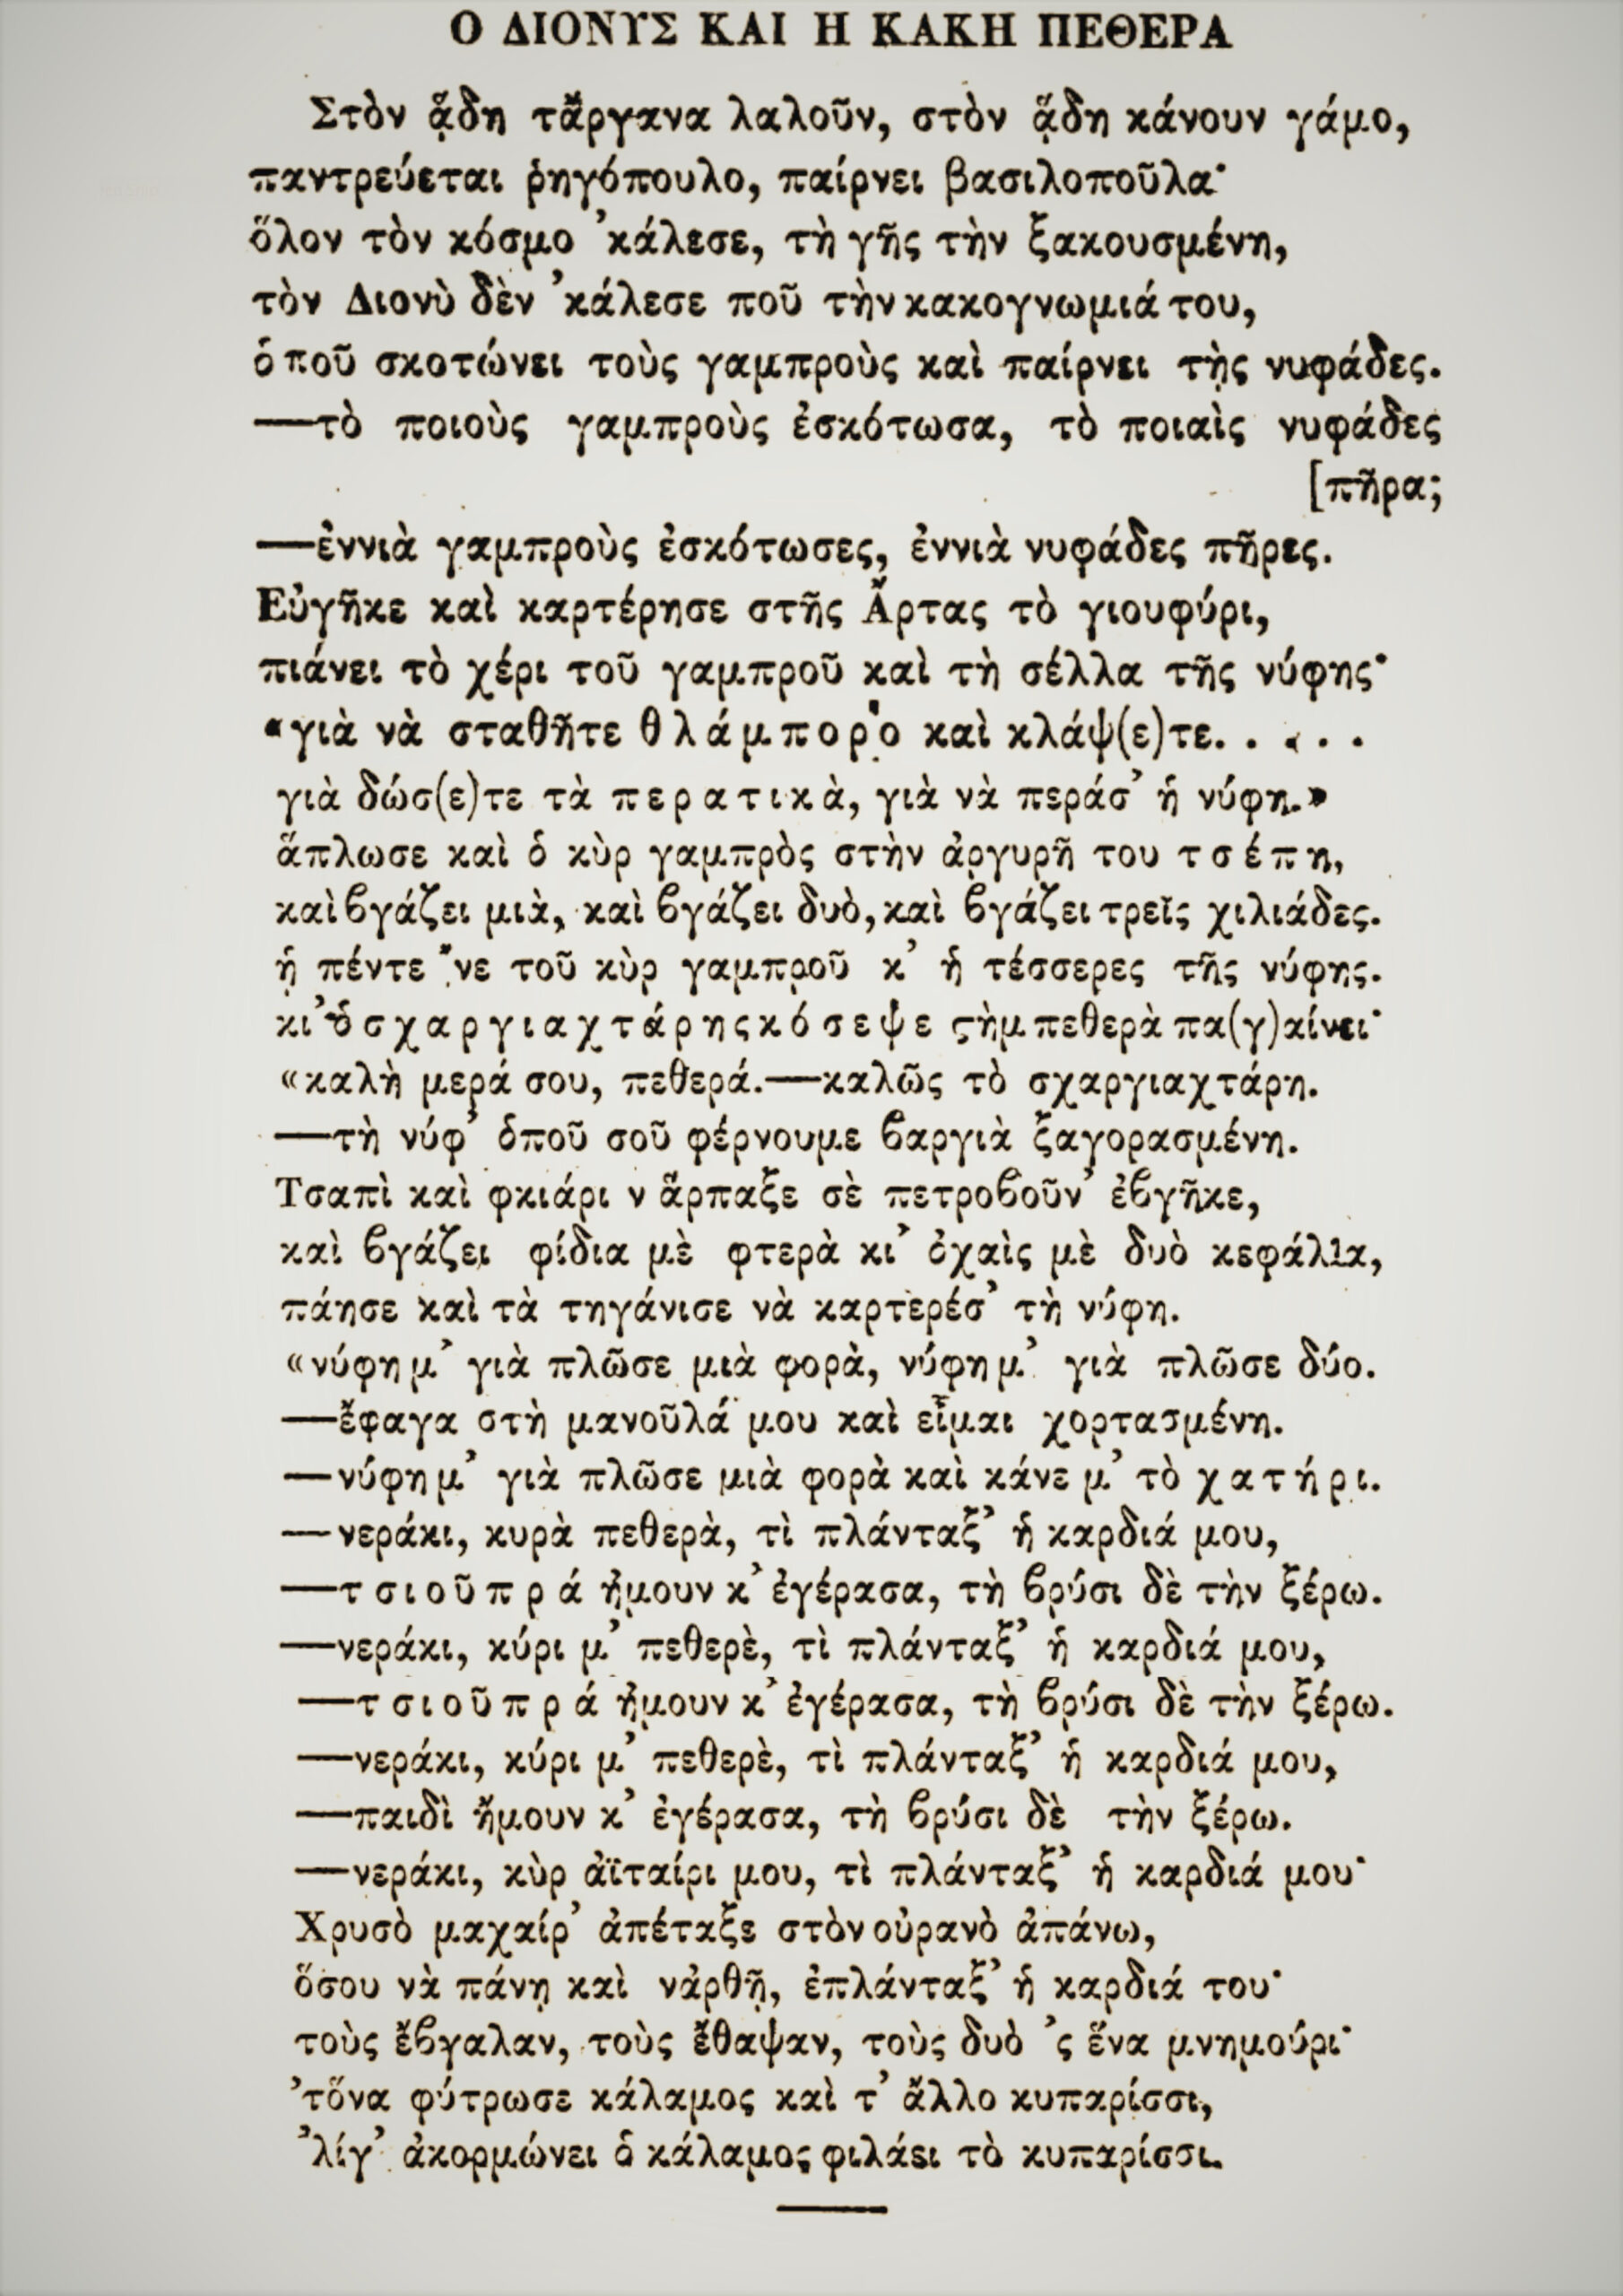 Ο ΔΙΟΝΥΣ ΚΑΙ Η ΚΑΚΗ ΠΕΘΕΡΑ
Στὸν ᾅδη τἄργανα λαλοῦν, στὸν ᾅδη κάνουν γάμο,
παντρεύεται ῥηγόπουλο, παίρνει βασιλοποῦλα·
ὅλον τὸν κόσμο ’κάλεσε, τὴ γῆς τὴν ξακουσμένη,
τὸν Διονὺ δὲν ’κάλεσε ποῦ τὴν κακογνωμιά του,
ὁποῦ σκοτώνει τοὺς γαμπροὺς καὶ παίρνει τῂς νυφάδες.
—τὸ ποιοὺς γαμπροὺς ἐσκότωσα, τὸ ποιαὶς νυφάδες
[πῆρα;
—ἐννιὰ γαμπροὺς ἐσκότωσες, ἐννιὰ νυφάδες πῆρες.
Εὐγῆκε καὶ καρτέρησε στῆς Ἄρτας τὸ γιουφύρι,
πιάνει τὸ χέρι τοῦ γαμπροῦ καὶ τὴ σέλλα τῆς νύφης·
«γιὰ νὰ σταθῆτε θλάμπορο καὶ κλάψ(ε)τε. . . . .
γιὰ δώσ(ε)τε τὰ περατικὰ, γιὰ νὰ περάσ’ ἡ νύφη.»
ἅπλωσε καὶ ὁ κὺρ γαμπρὸς στὴν ἀργυρῆ του τσέπη,
καὶ βγάζει μιὰ, καὶ βγάζει δυὸ, καὶ βγάζει τρεῖς χιλιάδες.
ᾑ πέντε ’νε τοῦ κὺρ γαμπροῦ κ’ ᾑ τέσσερες τῆς νύφης.
κι’ ὁ σχαργιαχτάρης κόσεψε ςτὴμ πεθερὰ πα(γ)αίνει·
«καλὴ μερά σου, πεθερά.—καλῶς τὸ σχαργιαχτάρη.
—τὴ νύφ’ ὁποῦ σοῦ φέρνουμε βαργιὰ ξαγορασμένη.
Τσαπὶ καὶ φκιάρι ν ἅρπαξε σὲ πετροβοῦν’ ἐβγῆκε,
καὶ βγάζει φίδια μὲ φτερὰ κι’ ὀχαὶς μὲ δυὸ κεφάλια,
πάησε καὶ τὰ τηγάνισε νὰ καρτερέσ’ τὴ νύφη.
«νύφη μ’ γιὰ πλῶσε μιὰ φορὰ, νύφη μ’ γιὰ πλῶσε δύο.
—ἔφαγα στὴ μανοῦλά μου καὶ εἶμαι χορτασμένη.
—νύφη μ’ γιὰ πλῶσε μιὰ φορὰ καὶ κάνε μ’ τὸ χατήρι.
—νεράκι, κυρὰ πεθερὰ, τὶ πλάνταξ’ ἡ καρδιά μου,
—τσιοῦπρά ἤμουν κ’ ἐγέρασα, τὴ βρύσι δὲ τὴν ξέρω.
—νεράκι, κύρι μ’ πεθερὲ, τὶ πλάνταξ’ ἡ καρδιά μου,
—τσιοῦπρά ἤμουν κ’ ἐγέρασα, τὴ βρύσι δὲ τὴν ξέρω.
—νεράκι, κύρι μ’ πεθερὲ, τὶ πλάνταξ’ ἡ καρδιά μου,
—παιδὶ ἤμουν κ’ ἐγέρασα, τὴ βρύσι δὲ τὴν ξέρω.
—νεράκι, κὺρ ἀϊταίρι μου, τὶ πλάνταξ’ ἡ καρδιά μου·
Χρυσὸ μαχαίρ’ ἀπέταξε στὸν οὐρανὸ ἀπάνω,
ὅσου νὰ πάνῃ καὶ νἀρθῇ, ἐπλάνταξ’ ἡ καρδιά του·
τοὺς ἔβγαλαν, τοὺς ἔθαψαν, τοὺς δυὸ ’ς ἕνα μνημούρι·
’τὅνα φύτρωσε κάλαμος καὶ τ’ ἄλλο κυπαρίσσι,
’λίγ’ ἀκορμώνει ὁ κάλαμος φιλάει τὸ κυπαρίσσι.